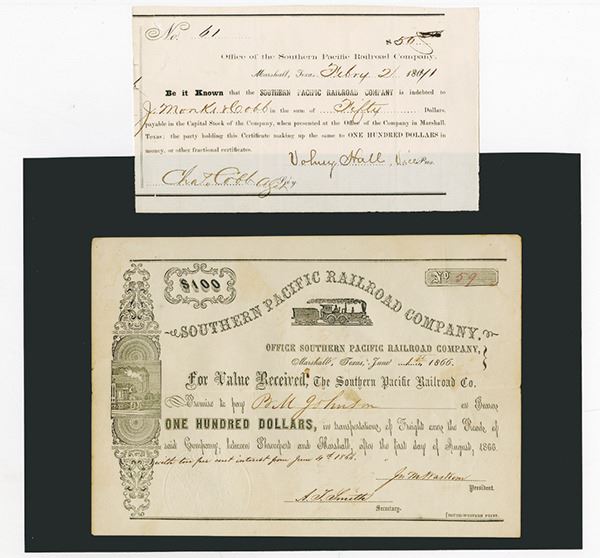 No. 61 $50
Office of the Southern Pacific Railroad Company,
Marshall, Texas, Febry 21 1861
Be it Known that the SOUTHERN PACIFIC RAILROAD COMPANY is indebted to
J. Monk & Cobb in the sum of Fifty Dollars,
payable in the Capital Stock of the Company, when presented at the Office of the Company in Marshall,
Texas; the party holding this Certificate making up the same to ONE HUNDRED DOLLARS in
money, or other fractional certificates.
Volney Hall, Vice Pres
Chas Cobb Agt
$100 No 59
SOUTHERN PACIFIC RAILROAD COMPANY.
OFFICE SOUTHERN PACIFIC RAILROAD COMPANY,
Marshall, Texas, June 1866.
For Value Received, The Southern Pacific Railroad Co.
Promise to pay B M Johnson or Bearer
ONE HUNDRED DOLLARS, in transportations of Freight over the Roads of
said Company, between Shreveport and Marshall, after the last day of August, 1866.
with ten per cent interest from June 4th 1866.
President.
A. F. Smith
Secretary.
[SOUTH-WESTERN PRINT.